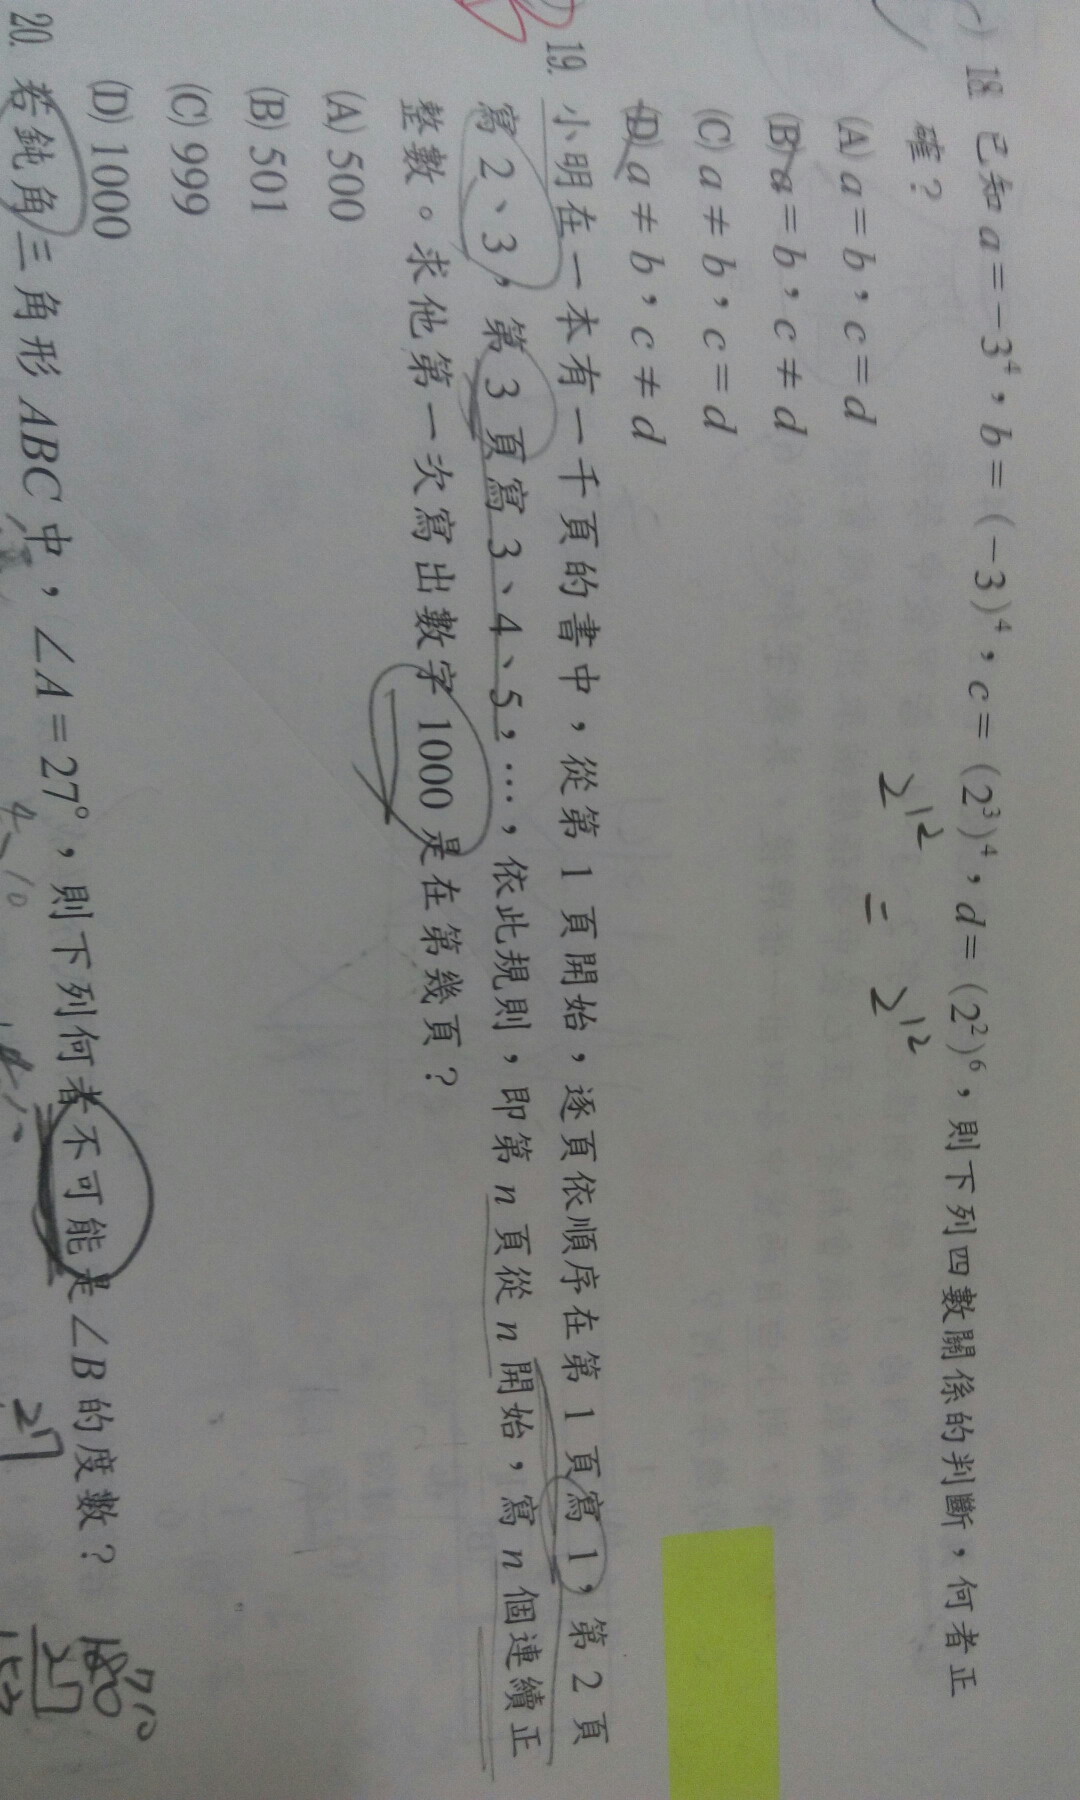 18. 已知 a=-3⁴，b=(-3)⁴，c=(2³)⁴，d=(2²)⁶，則下列四數關係的判斷，何者正
確？
2¹² = 2¹²
(A) a=b，c=d
(B) a=b，c≠d
(C) a≠b，c=d
(D) a≠b，c≠d
19. 小明在一本有一千頁的書中，從第 1 頁開始，逐頁依順序在第 1 頁寫 1，第 2 頁
寫 2、3，第 3 頁寫 3、4、5，…，依此規則，即第 n 頁從 n 開始，寫 n 個連續正
整數。求他第一次寫出數字 1000 是在第幾頁？
(A) 500
(B) 501
(C) 999
(D) 1000
20. 若鈍角三角形 ABC 中，∠A=27°，則下列何者不可能是∠B 的度數？
27